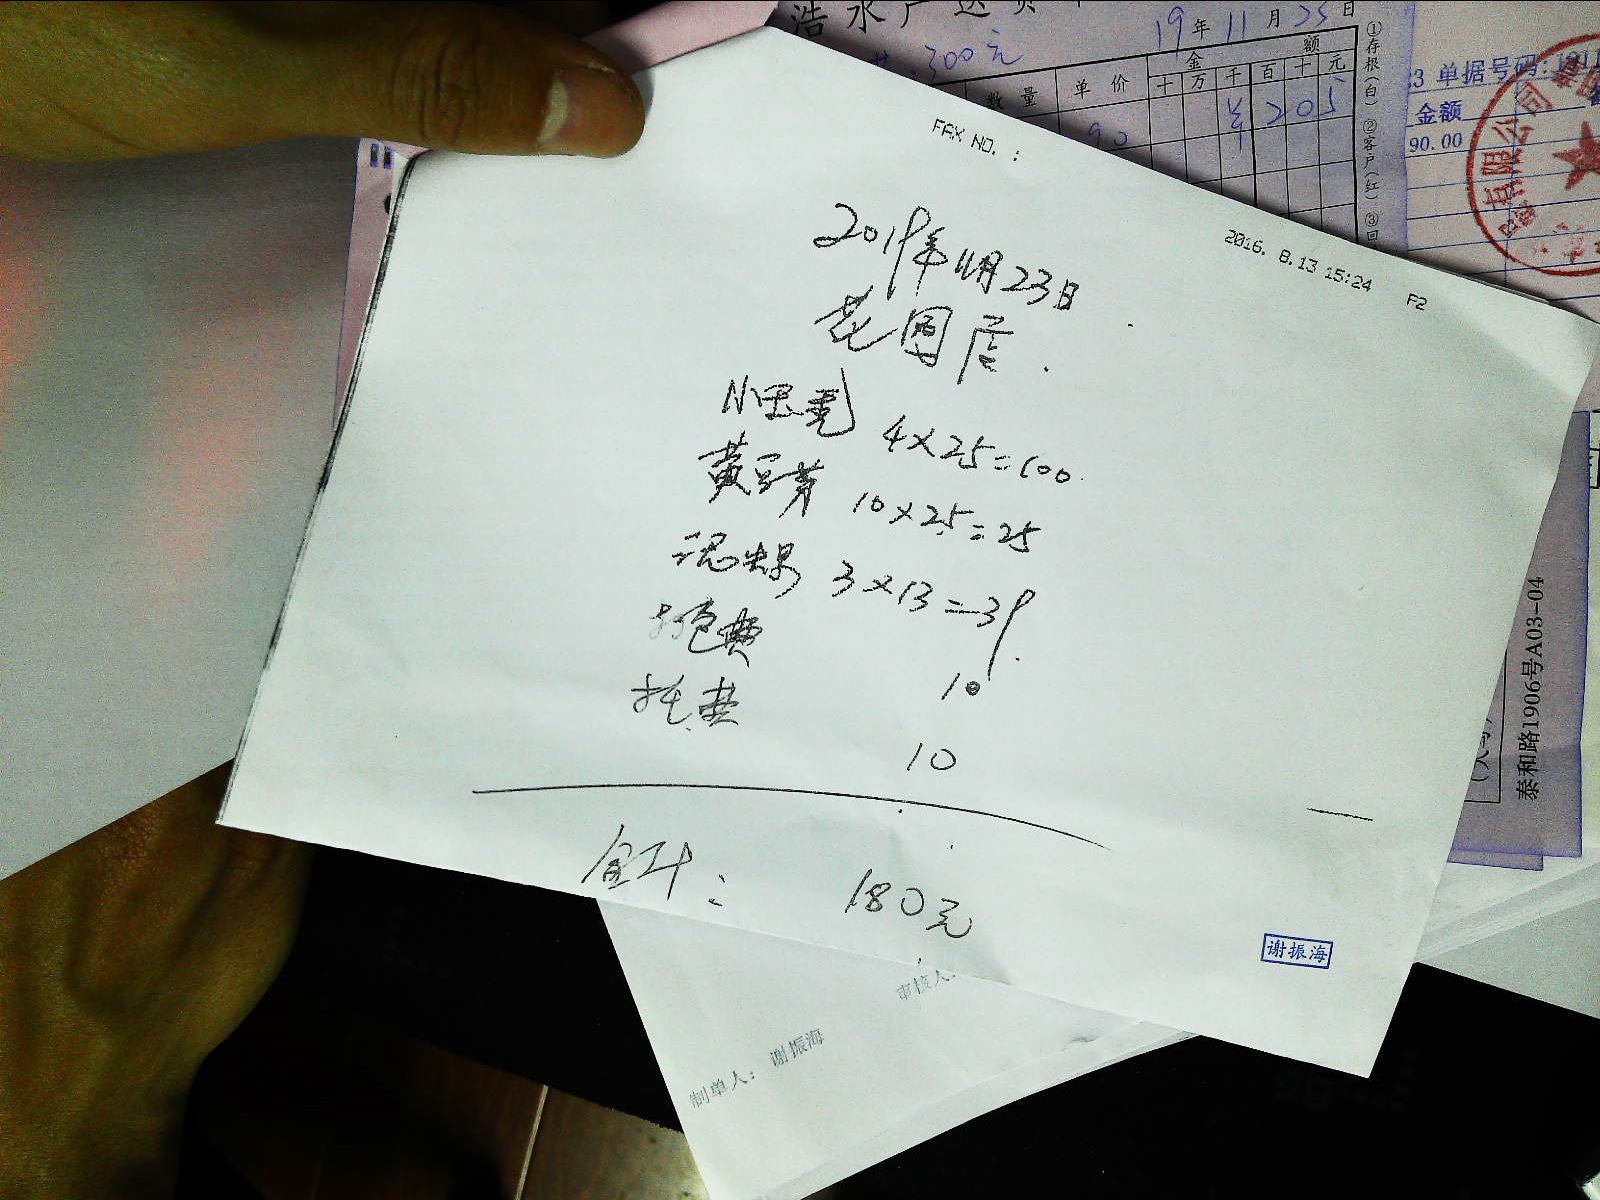 19年11月23日
300元
数量 单价 金额
十 万 千 百 十 元
90 ¥ 2 0 5
①存根(白) ②客户(红) ③回
单据号码:
金额
90.00
有限公司
FAX NO. :
2016. 8.13 15:24 P2
2019年11月23日
花园店
4×25=100
黄豆芽 10×2.5=25
3×13=39
打包费 10
托费 10
合计: 180元
谢振海
泰和路1906号A03-04
审核人:
制单人: 谢振海